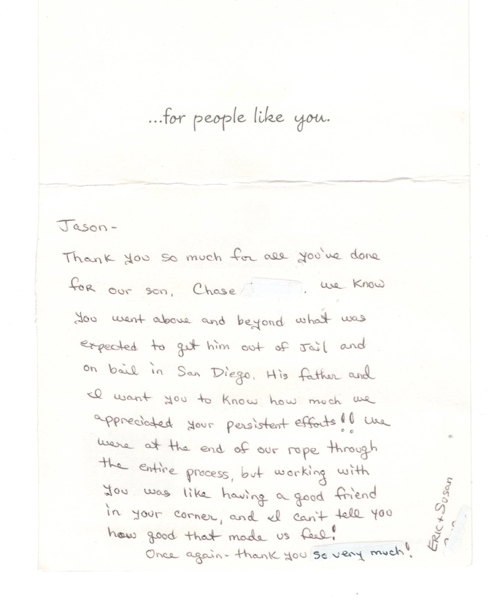 ...for people like you.
Jason-
Thank you so much for all you've done
for our son, Chase . We know
you went above and beyond what was
expected to get him out of Jail and
on bail in San Diego. His father and
I want you to know how much we
appreciated your persistent efforts!! We
were at the end of our rope through
the entire process, but working with
you was like having a good friend
in your corner, and I can't tell you
how good that made us feel!
Once again- thank you so very much!
Eric + Susan